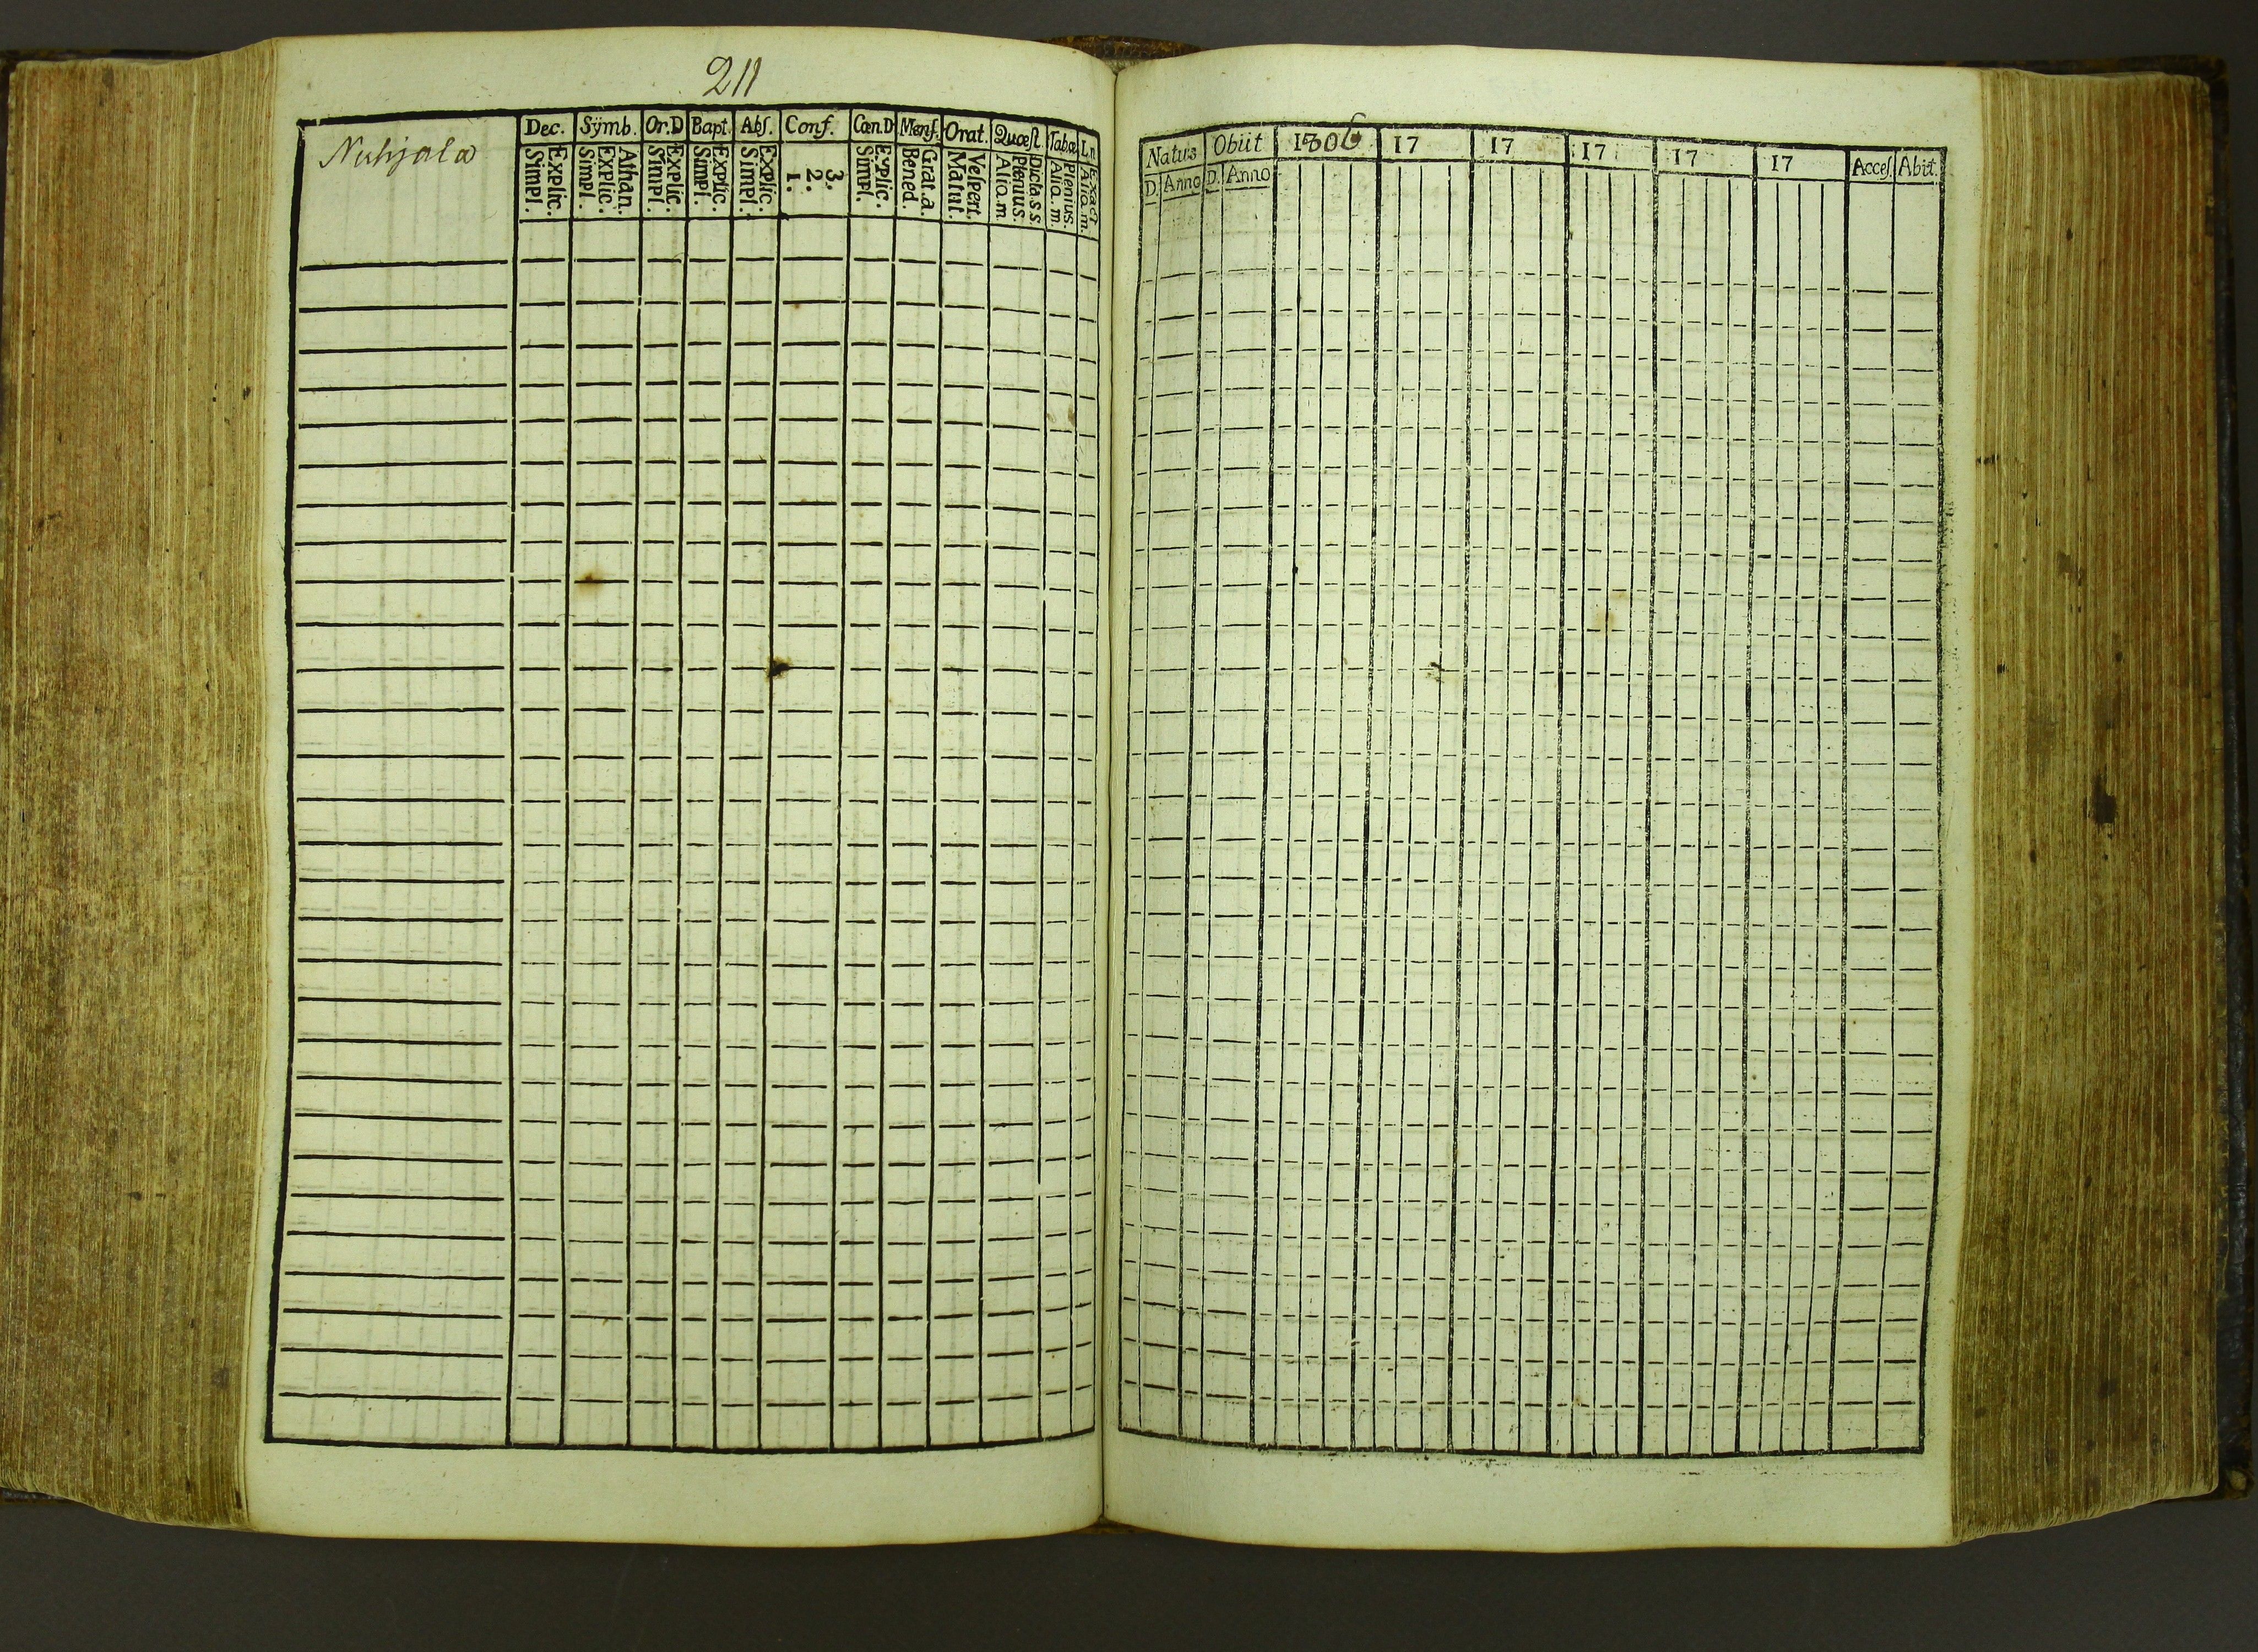 211
Nuhjala
Dec. Sÿmb. Or.D Bapt. Abſ. Conf. Cœn.D Menſ. Orat. Quœſt. Tabœ L.n
Simpl. Explic. Simpl. Explic. Athan. Simpl. Explic. Simpl. Explic. Simpl. Explic. 1. 2. 3. Simpl. Explic. Bened. Grat.a. Matut. Veſpert. Alio.m Plenius. Dicta.s.s. Alia.m. Plenius. Alia.m. Exact
Natus Obiit 1806 17 17 17 17 17 Acceſ. Abit.
D. Anno D. Anno